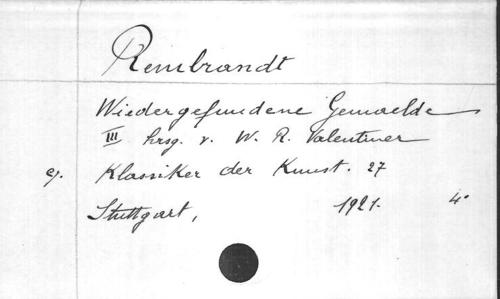 Rembrandt
Wiedergefundene Gemaelde
III hrsg. v. W. R. Valentiner
Klassiker der Kunst. 27
Stuttgart, 1921. 4°